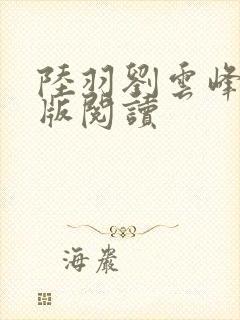 陸羽劉雲峰
版閱讀
海巖